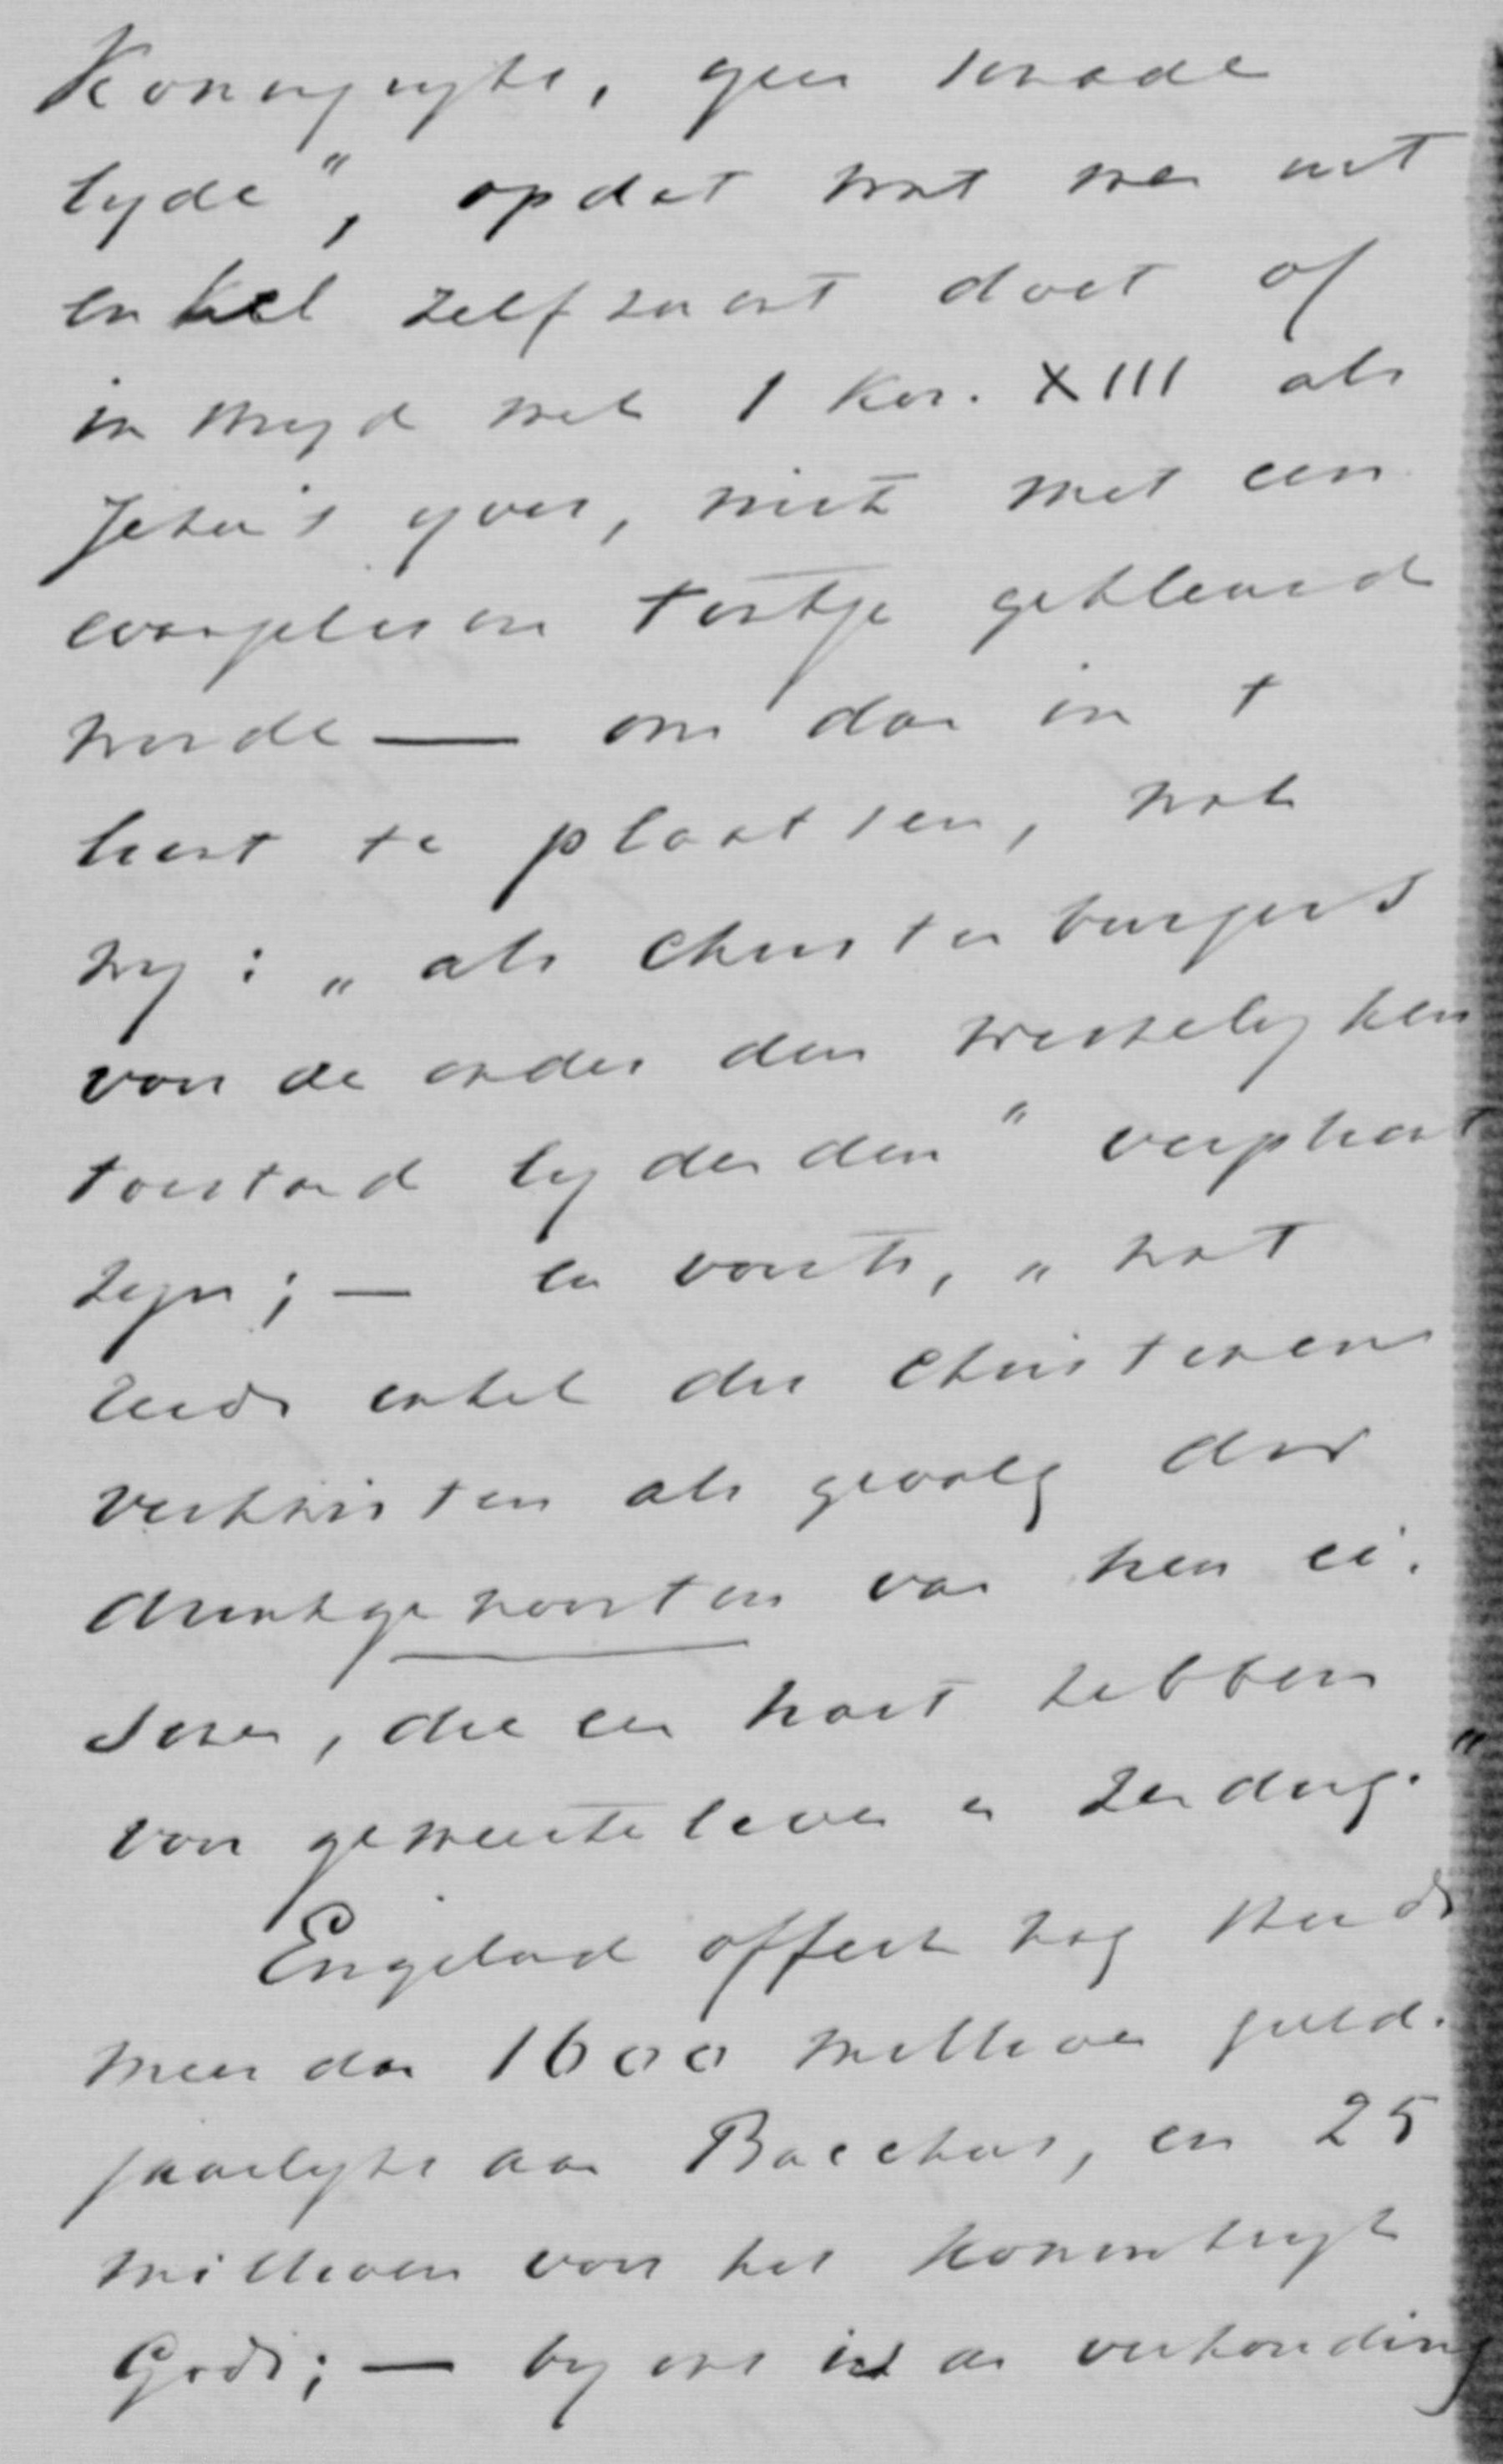 Koningryks, geen schade
lyde", opdat wat men uit
enkel zelfzucht doet of
in stryd met 1 Kor. XIII als
Jehu's yver, niet met een
evangelisch tintje gekleurd
worde — om dan in 't
licht te plaatsen, wat
wy: „als Christen burgers
voor de onder den treurigen
toestand lydenden" verplicht
zyn; — en voorts, „wat
reeds enkel die Christenen
verkwisten als gevolg der
drinkgewoonten van hen ei.
schen, die een hart hebben
voor gemeenteleven en zending."
Engeland offert nog steeds
meer dan 1600 millioen guld.
jaarlyks aan Bacchus, en 25
millioen voor het Koninkryk
Gods; — by ons is de verhouding